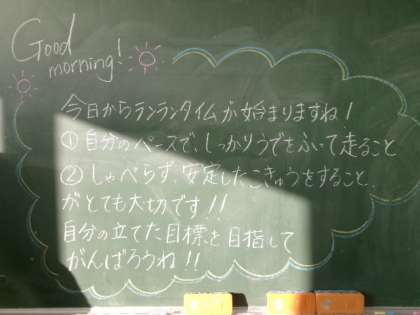 Good
morning!
今日からランランタイムが始まりますね!
①自分のペースで、しっかりうでをふって走ること
②しゃべらず、安定したこきゅうをすること、
がとても大切です!!
自分の立てた目標を目指して
がんばろうね!!